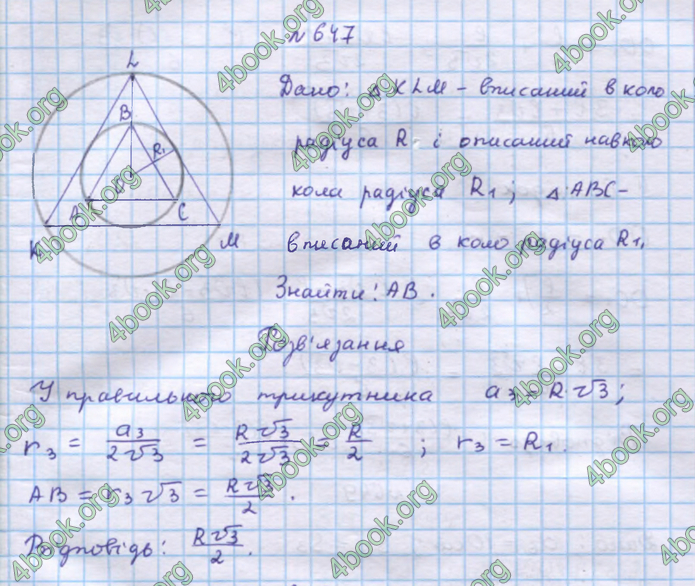 № 647
Дано: △KLM – вписаний в коло
радіуса R і описаний навколо
кола радіуса R₁; △ABC –
вписаний в коло радіуса R₁.
Знайти: AB.
Розв'язання
У правильного трикутника a₃ = R√3;
r₃ = a₃/2√3 = R√3/2√3 = R/2; r₃ = R₁.
AB = r₃√3 = R√3/2.
Відповідь: R√3/2.
L
B
R₁
O
A
C
K
M
4book.org